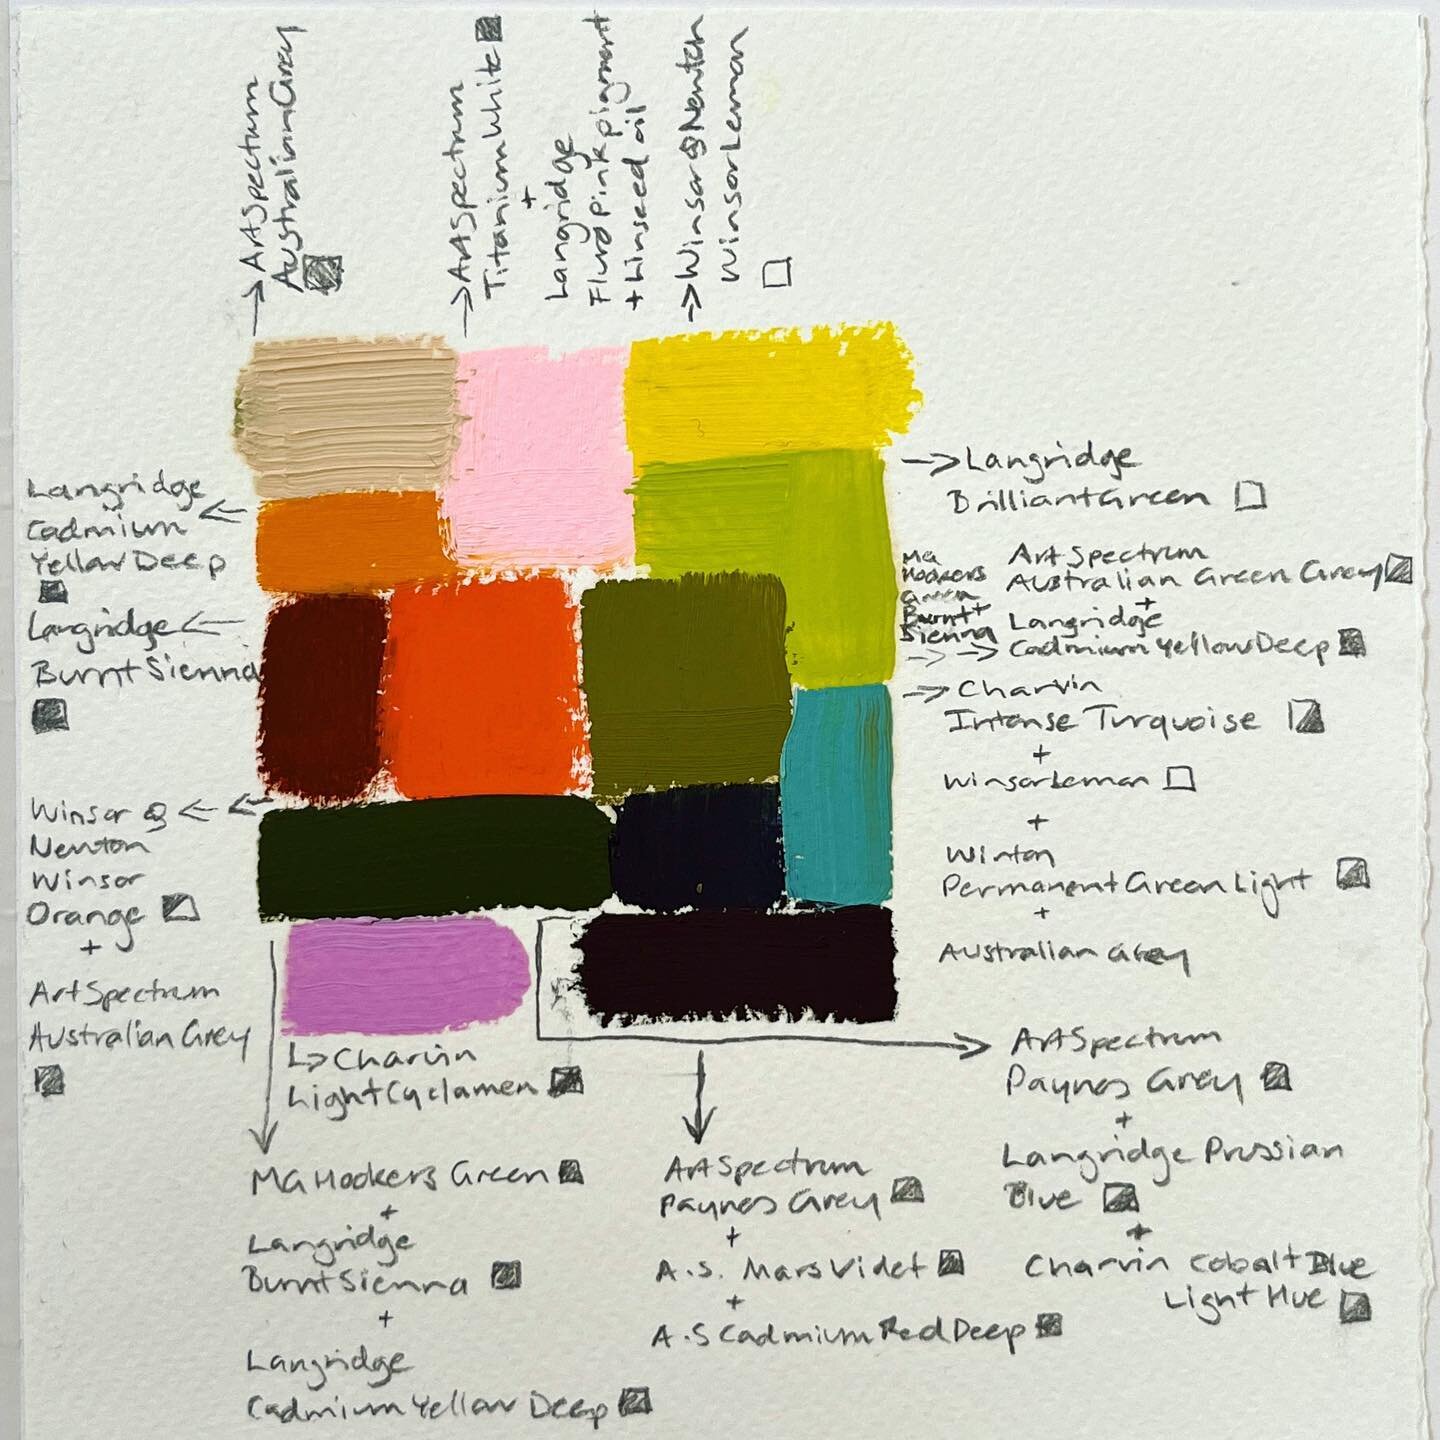 ArtSpectrum
Australian Grey
ArtSpectrum
Titanium White
+
Langridge
Fluro pink pigment
+ linseed oil
Winsor & Newton
Winsor Lemon
Langridge
Cadmium
Yellow Deep
Langridge
Burnt Sienna
Winsor &
Newton
Winsor
Orange
+
ArtSpectrum
Australian Grey
Langridge
Brilliant Green
MG
Hookers
Green
Burnt +
Sienna
Art Spectrum
Australian Green Grey
+
Langridge
Cadmium Yellow Deep
Charvin
Intense Turquoise
+
Winsor Lemon
+
Winton
Permanent Green Light
+
Australian Grey
Charvin
Light Cyclamen
MG Hookers Green
+
Langridge
Burnt Sienna
+
Langridge
Cadmium Yellow Deep
ArtSpectrum
Paynes Grey
+
A.S. Mars Violet
+
A.S Cadmium Red Deep
ArtSpectrum
Paynes Grey
+
Langridge Prussian
Blue
+
Charvin Cobalt Blue
Light Hue